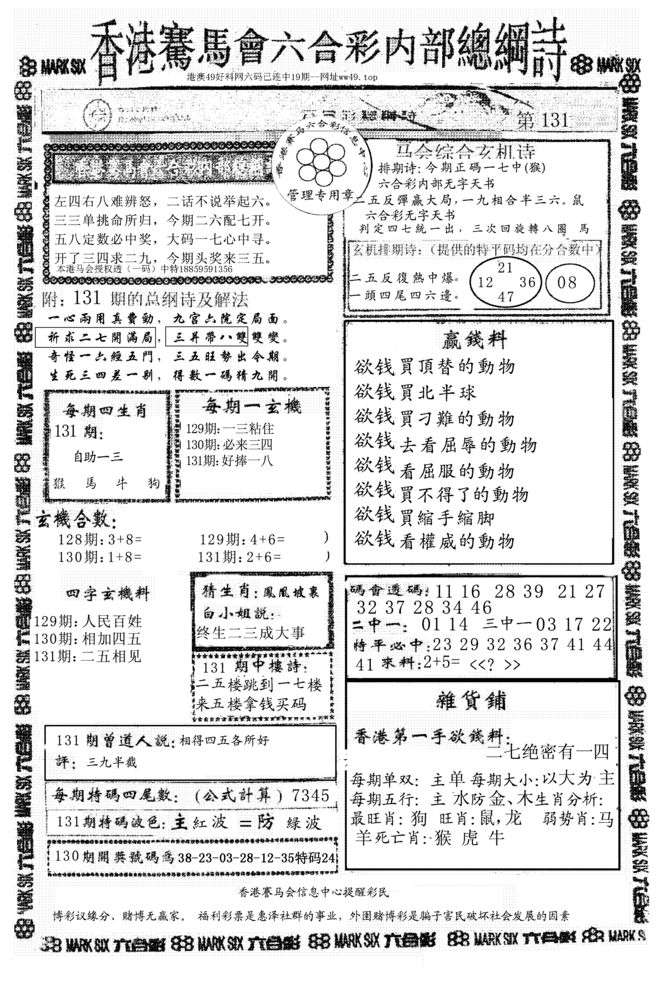 香港騫馬會六合彩内部總綱詩
MARK SIX
港澳49好料网六码已连中19期—网址ww49.top
MARK SIX
第131
香港赛马六合彩信息中心
管理专用章
左四右八难辨怒，二话不说举起六。
三三单挑命所归，今期二六配七开。
五八定数必中奖，大码一七心中寻。
开了三四求二九，今期头奖来三五。
本港马会授权透（一码）中特18859591356
马会综合玄机诗
排期诗：今期正码一七中(猴)
六合彩内部无字天书
二五反彈贏大局，一九相合半三六。鼠
六合彩无字天书
判定四七統一出，三次回旋轉八圈 馬
玄机排期诗：（提供的特平码均在分合数中）
二五反復熱中爆。
一頭四尾四六逢。
21
12 36
47
08
附：131 期的总纲诗及解法
一心兩用真費勁，九宫六院定局面。
祈求二七開滿局，三昇帶八雙雙變。
奇怪一六經五門，三五旺勢出今期。
生死三四差一剔，得數一碼猜九開。
每期四生肖
131 期:
自助一三
猴 馬 牛 狗
每期一玄機
129期:一三粘住
130期:必来三四
131期:好捧一八
玄機合數：
128期:3+8=
129期:4+6= )
130期:1+8=
131期:2+6= )
赢錢料
欲钱買頂替的動物
欲钱買北半球
欲钱買刁難的動物
欲钱去看屈辱的動物
欲钱看屈服的動物
欲钱買不得了的動物
欲钱買縮手縮脚
欲钱看權威的動物
四字玄機料
129期:人民百姓
130期:相加四五
131期:二五相见
猜生肖：鳳凰坡裏
白小姐説：
终生二三成大事
131 期中樓詩：
二五楼跳到一七楼
来五楼拿钱买码
碼會透碼:11 16 28 39 21 27
32 37 28 34 46
二中一: 01 14 三中一 03 17 22
特平必中:23 29 32 36 37 41 44
41 來料:2+5= <<? >>
131期曾道人説：相得四五各所好
評：三九半截
每期特碼四尾數：(公式計算) 7345
131期特碼波色：主 紅波 二防 緑波
130期開獎號碼爲38-23-03-28-12-35特码24
雜貨鋪
香港第一手欲錢料：
二七绝密有一四
每期单双：主单 每期大小:以大为 主
每期五行：主 水防金、木生肖分析:
最旺肖：狗 旺肖:鼠,龙 弱势肖:马
羊死亡肖:猴 虎 牛
香港赛马会信息中心提醒彩民
博彩议缘分、赌博无赢家， 福利彩票是惠泽社群的事业，外围赌博彩是骗子害民破坏社会发展的因素
MARK SIX 六合彩 MARK SIX 六合彩 MARK SIX 六合彩 MARK SIX 六合彩 MARK S